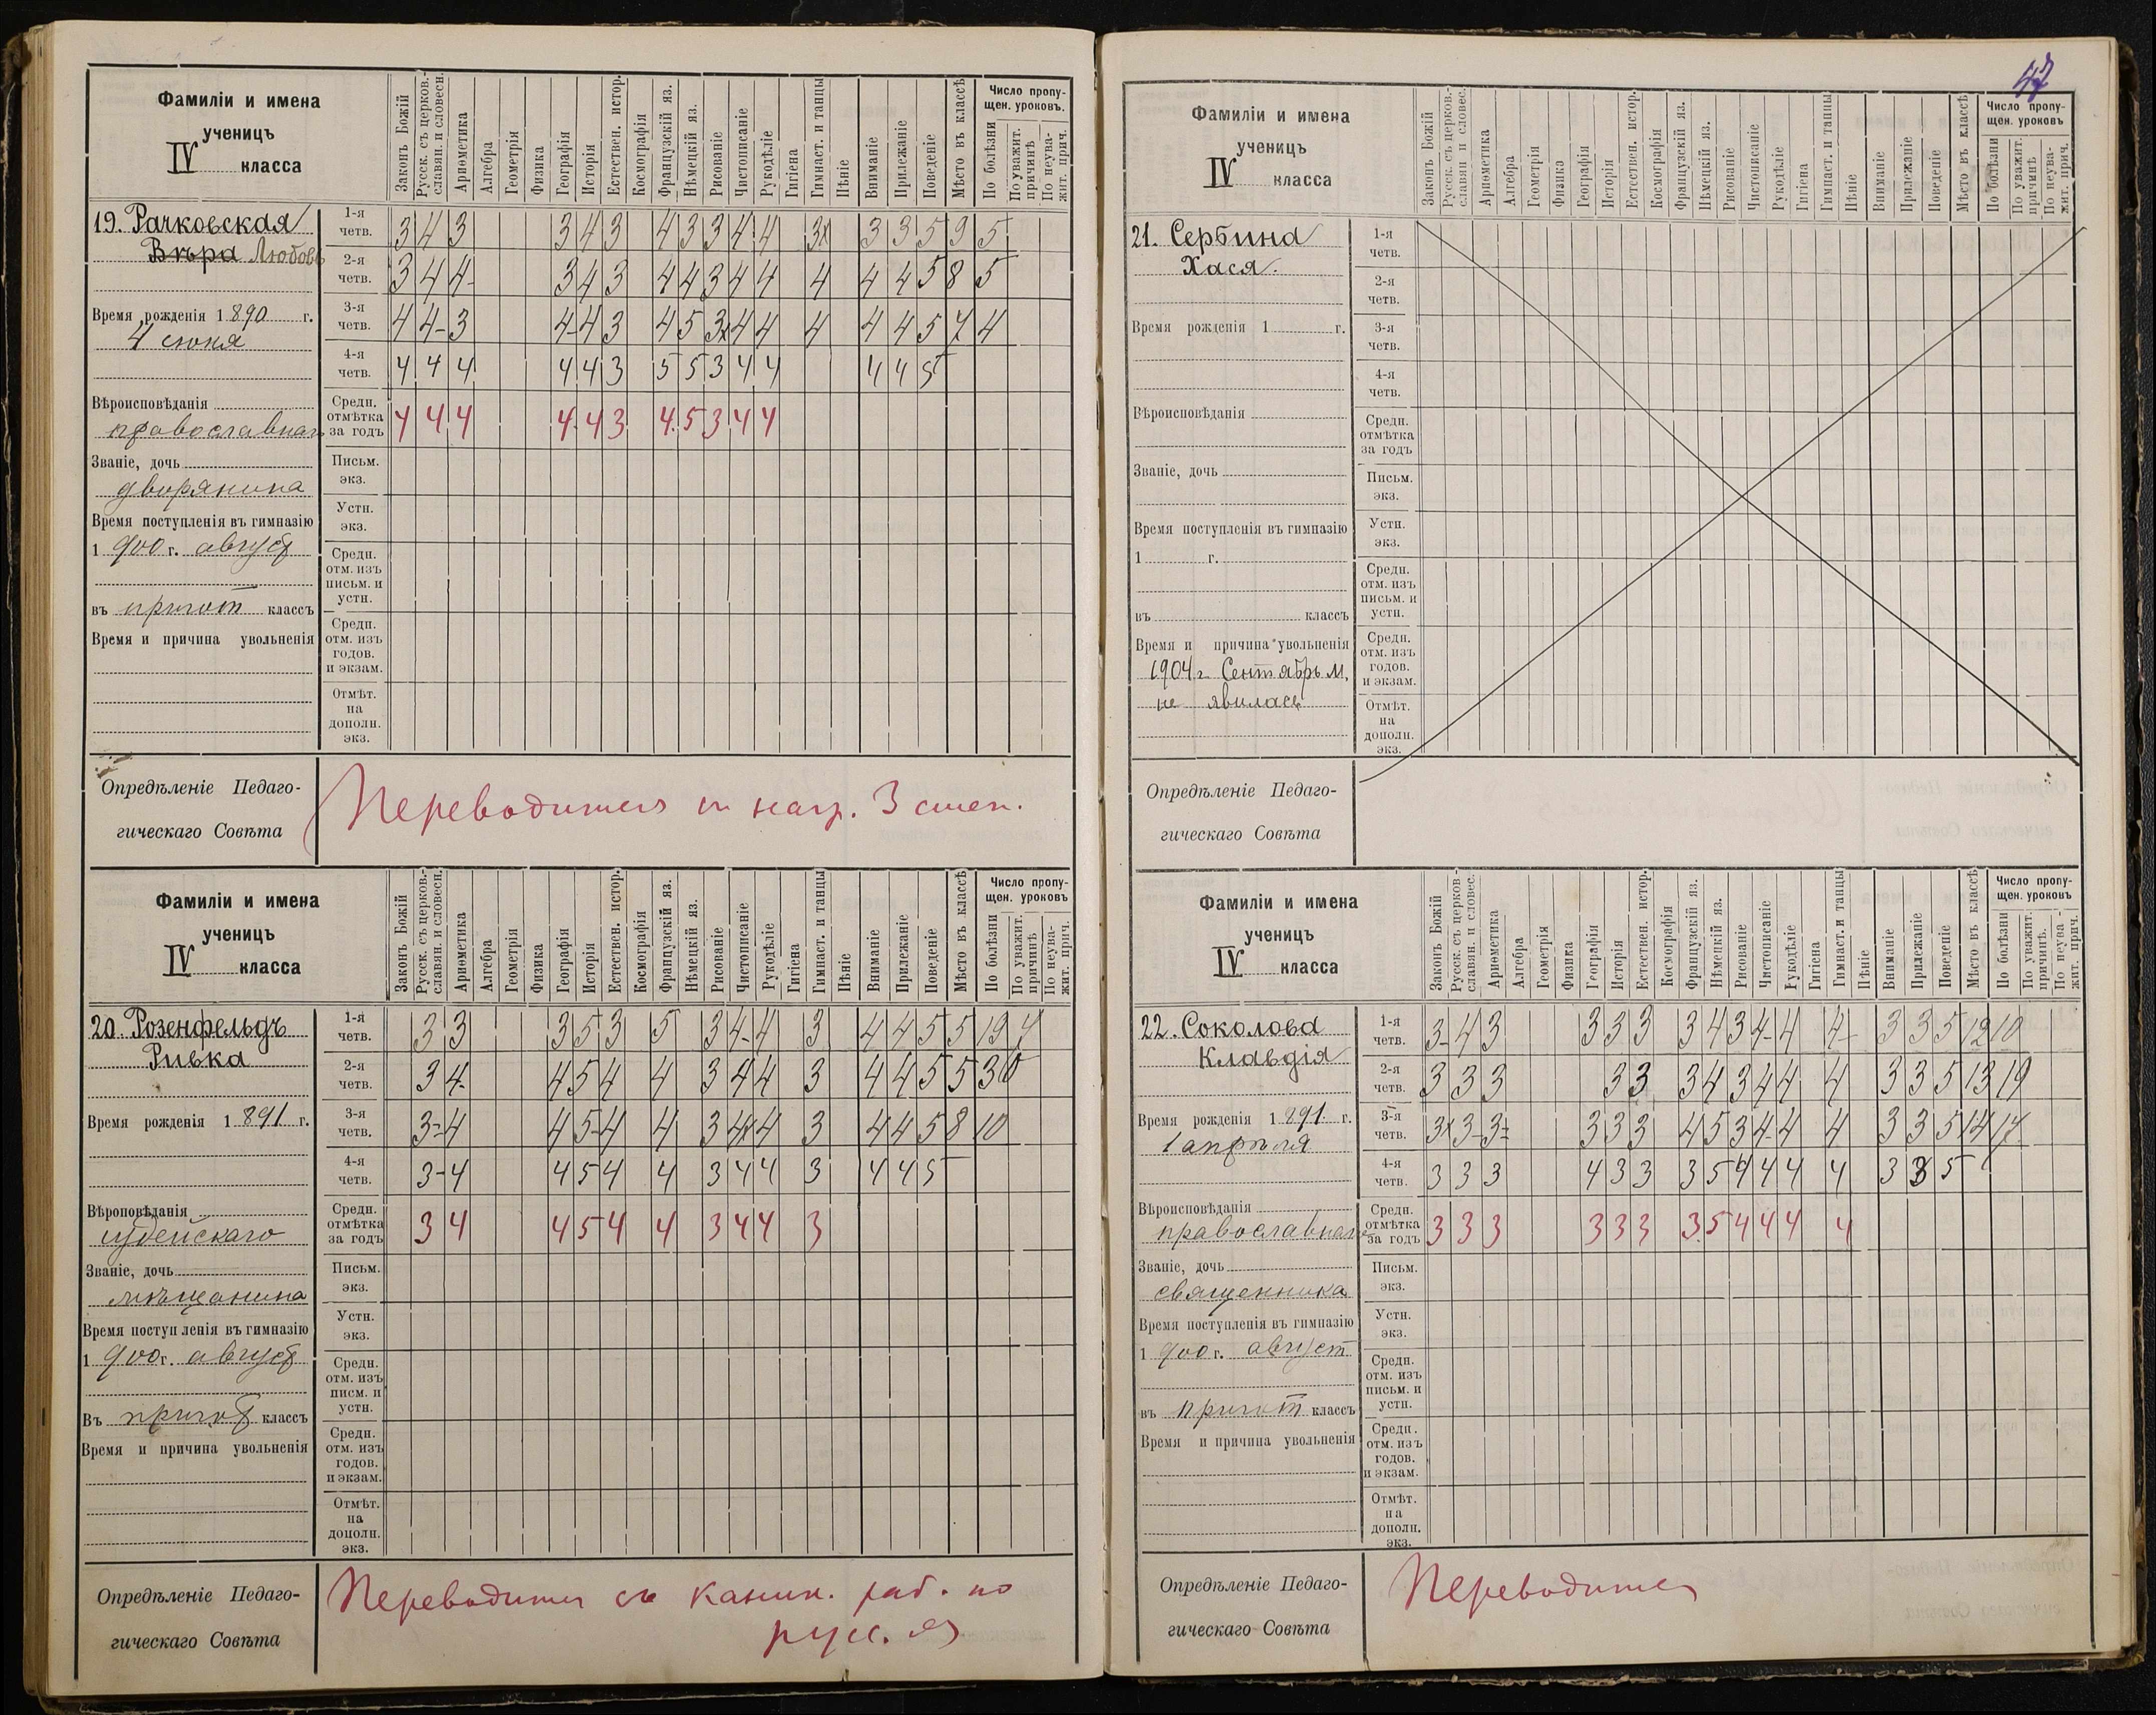 47
Фамиліи и имена
ученицъ
IV класса
Законъ Божій
Русск. съ церков.-
славян. и словесн.
Ариѳметика
Алгебра
Геометрія
Физика
Географія
Исторія
Естествен. истор.
Космографія
Французскій яз.
Нѣмецкій яз.
Рисованіе
Чистописаніе
Рукодѣліе
Гигіена
Гимнаст. и танцы
Пѣніе
Вниманіе
Прилежаніе
Поведеніе
Мѣсто въ классѣ
Число пропу-
щен. уроковъ.
По болѣзни
По уважит.
причинѣ
По неува-
жит. прич.
19. Рачковская
Вѣра Любовь
Время рожденія 1890 г.
4 іюня
Вѣроисповѣданія
православнаго
Званіе, дочь
дворянина
Время поступленія въ гимназію
1900 г. август
въ пригот классъ
Время и причина увольненія
1-я четв. 3 4 3 3 4 3 4 3 3 4 4 3x 3 3 5 9 5
2-я четв. 3 4 4 3 4 3 4 4 3 4 4 4 4 4 5 8 5
3-я четв. 4 4- 3 4- 4 3 4 5 3x 4 4 4 4 4 5 7 4
4-я четв. 4 4 4 4 4 3 5 5 3 4 4 4 4 5
Средн. отмѣтка за годъ 4 4 4 4 4 3 4 5 3 4 4
Письм. экз.
Устн. экз.
Средн. отм. изъ письм. и устн.
Средн. отм. изъ годов. и экзам.
Отмѣт. на дополн. экз.
Опредѣленіе Педаго-
гическаго Совѣта
Переводится съ нагр. 3 степ.
Фамиліи и имена
ученицъ
IV класса
Законъ Божій
Русск. съ церков.-
славян. и словесн.
Ариѳметика
Алгебра
Геометрія
Физика
Географія
Исторія
Естествен. истор.
Космографія
Французскій яз.
Нѣмецкій яз.
Рисованіе
Чистописаніе
Рукодѣліе
Гигіена
Гимнаст. и танцы
Пѣніе
Вниманіе
Прилежаніе
Поведеніе
Мѣсто въ классѣ
Число пропу-
щен. уроковъ
По болѣзни
По уважит.
причинѣ
По неува-
жит. прич.
20 Розенфельдъ
Ривка
Время рожденія 1891 г.
Вѣроповѣданія
іудейскаго
Званіе, дочь
мѣщанина
Время поступленія въ гимназію
1900 г. август
Въ пригот классъ
Время и причина увольненія
1-я четв. 3 3 3 5 3 5 3 4- 4 3 4 4 5 5 19 4
2-я четв. 3 4- 4 5 4 4 3 4 4 3 4 4 5 5 30
3-я четв. 3- 4 4 5- 4 4 3 4x 4 3 4 4 5 8 10
4-я четв. 3- 4 4 5 4 4 3 4 4 3 4 4 5
Средн. отмѣтка за годъ 3 4 4 5 4 4 3 4 4 3
Письм. экз.
Устн. экз.
Средн. отм. изъ писм. и устн.
Средн. отм. изъ годов. и экзам.
Отмѣт. на дополн. экз.
Опредѣленіе Педаго-
гическаго Совѣта
Переводится съ каник. раб. по
русс. яз
Фамиліи и имена
ученицъ
IV класса
Законъ Божій
Русск. съ церков.-
славян и словес.
Ариѳметика
Алгебра
Геометрія
Физика
Географія
Исторія
Естествен. истор.
Космографія
Французскій яз.
Нѣмецкій яз.
Рисованіе
Чистописаніе
Рукодѣліе
Гигіена
Гимнаст. и танцы
Пѣніе
Вниманіе
Прилежаніе
Поведеніе
Мѣсто въ классѣ
Число пропу-
щен. уроковъ
По болѣзни
По уважит.
причинѣ
По неува-
жит. прич.
21. Сербина
Хася.
Время рожденія 1 г.
Вѣроисповѣданія
Званіе, дочь
Время поступленія въ гимназію
1 г.
въ классъ
Время и причина увольненія
1904 г. Сентябрь м,
не явилась
1-я четв.
2-я четв.
3-я четв.
4-я четв.
Средн. отмѣтка за годъ
Письм. экз.
Устн. экз.
Средн. отм. изъ письм. и устн.
Средн. отм. изъ годов. и экзам.
Отмѣт. на дополн. экз.
Опредѣленіе Педаго-
гическаго Совѣта
Фамиліи и имена
ученицъ
IV класса
Законъ Божій
Русск. съ церков-
славян. и словес.
Ариѳметика
Алгебра
Геометрія
Физика
Географія
Исторія
Естествен. истор.
Космографія
Французскій яз.
Нѣмецкій яз.
Рисованіе
Чистописаніе
Рукодѣліе
Гигіена
Гимнаст. и танцы
Пѣніе
Вниманіе
Прилежаніе
Поведеніе
Мѣсто въ классѣ
Число пропу-
щен. уроковъ
По болѣзни
По уважит.
причинѣ.
По неува-
жит. прич.
22. Соколова
Клавдія
Время рожденія 1891 г.
1 апрѣля
Вѣроисповѣданія
православнаго
Званіе, дочь
священника
Время поступленія въ гимназію
1900 г. август
въ пригот классъ
Время и причина увольненія
1-я четв. 3- 4 3 3 3 3 3 4 3 4- 4 4- 3 3 5 12 10
2-я четв. 3 3 3 3 3 3 4 3 4 4 4 3 3 5 13 19
3-я четв. 3x 3- 3= 3 3 3 4 5 3 4- 4 4 3 3 5 14 17
4-я четв. 3 3 3 4 3 3 3 5 4 4 4 4 3 3 5
Средн. отмѣтка за годъ 3 3 3 3 3 3 3 5 4 4 4 4
Письм. экз.
Устн. экз.
Средн. отм. изъ письм. и устн.
Средн. отм. изъ годов. и экзам.
Отмѣт. на дополн. экз.
Опредѣленіе Педаго-
гическаго Совѣта
Переводится